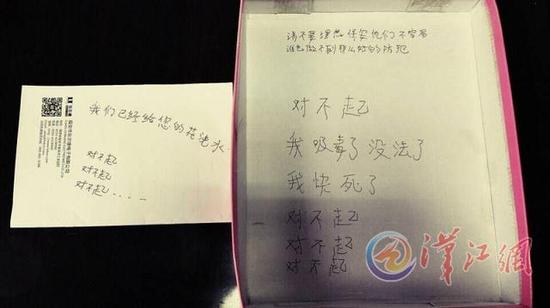 我们已经给您的花浇水.
对不起
对不起
对不起....
请不要埋怨保安他们不容易
谁也做不到那么好的防范
对不起
我吸毒了没法了
我快死了
对不起
对不起
对不起
漢江網